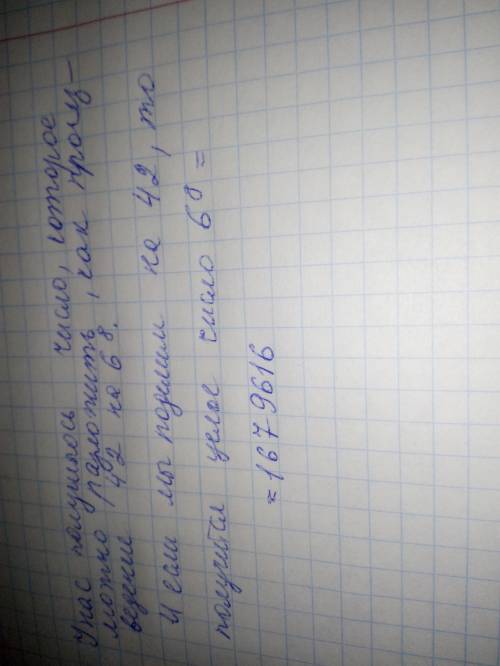 У нас получилось число, которое
можно разложить, как произ-
ведение 42 на 6⁸.
И если мы поделим на 42, то
получится целое число 6⁸ =
= 1679616